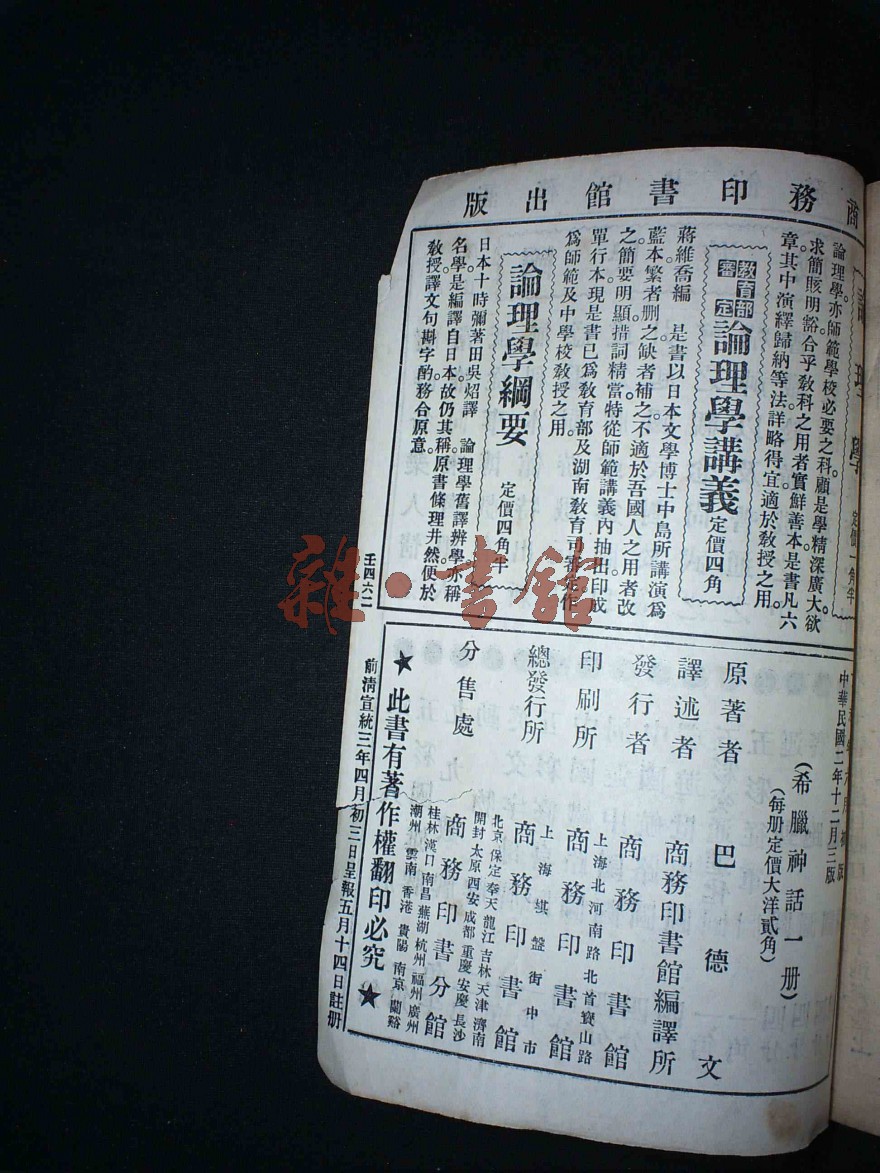 商務印書館出版
論理學
定價一角半
論理學亦師範學校必要之科顧是學精深廣大欲
求簡賅明豁合乎敎科之用者實鮮善本是書凡六
章其中演繹歸納等法詳略得宜適於敎授之用
敎育部審定
論理學講義
定價四角
蔣維喬編 是書以日本文學博士中島所講演爲
藍本繁者刪之缺者補之不適於吾國人之用者改
之簡要明顯措詞精當特從師範講義內抽出印成
單行本現是書已爲敎育部及湖南敎育司審定作
爲師範及中學校敎授之用
論理學綱要
定價四角半
日本十時彌著田吳炤譯 論理學舊譯辨學亦稱
名學是編譯自日本故仍其稱原書條理井然便於
敎授譯文句斟字酌務合原意
壬四六二
年六月初版
中華民國二年十二月三版
(希臘神話一册)
(每册定價大洋貳角)
原著者 巴德文
譯述者 商務印書館編譯所
發行者 商務印書館
印刷所 上海北河南路北首寶山路 商務印書館
總發行所 上海棋盤街中市 商務印書館
分售處 商務印書分館
北京 保定 奉天 龍江 吉林 天津 濟南
開封 太原 西安 成都 重慶 安慶 長沙
桂林 漢口 南昌 蕪湖 杭州 福州 廣州
潮州 雲南 香港 貴陽 南京 蘭谿
★此書有著作權翻印必究★
前淸宣統三年四月初三日呈報五月十四日註册
雜·書館